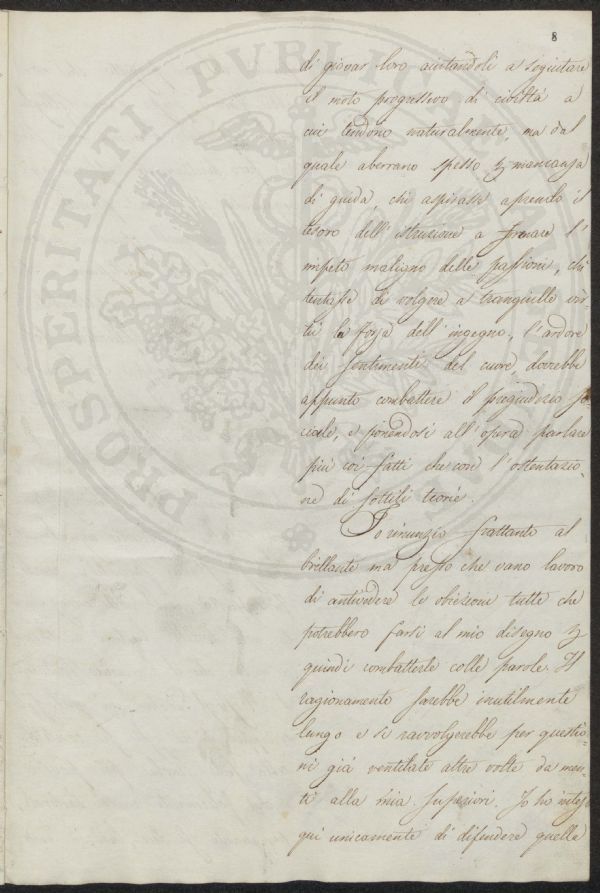 8
di giovar loro aiutandoli a seguitare
il moto progressivo di civiltà a
cui tendono naturalmente, ma dal
quale aberrano spesso p mancanza
di guida, chi aspirasse aprendo il
tesoro dell'istruzione a frenare l'
impeto maligno delle passioni, chi
tentasse di volgere a tranquille vir
tù la forza dell'ingegno, l'ardore
dei sentimenti del cuore, dovrebbe
appunto combattere il pregiudizio so-
ciale, e ponendosi all'opera parlare
più coi fatti che con l'ostentazio-
ne di sottili teorie.
Io rinunzio frattanto al
brillante ma presso che vano lavoro
di antivedere le obiezioni tutte che
potrebbero farsi al mio disegno p
quindi combatterle colle parole. Il
ragionamento sarebbe inutilmente
lungo e si ravvolgerebbe per questio-
ni già ventilate altre volte da men-
ti alla mia superiori. Io ho inteso
qui unicamente di difendere quella
PROSPERITATI PVBLICAE